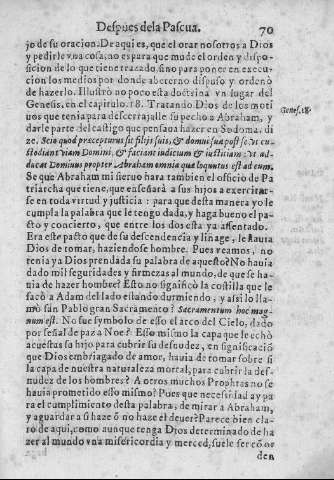 Despues dela Pascua. 70
jo de su oracion. De aqui es, que el orar nosotros a Dios
y pedirle vna cosa, no es para que mude el orden y dispo-
sicion de lo que tiene trazado, sino para poner en execu-
cion los medios por donde abeterno dispuso y ordenò
de hazerlo. Illustrò no poco esta doctrina vn lugar del
Genesis, en el capitulo. 18. Tratando Dios de los moti
uos que tenia para descerrajalle su pecho a Abraham, y
darle parte del castigo que pensaua hazer en Sodoma, di
ze. Scio quòd præcepturus sit filijs suis, & domui sua post se, vt cu-
stodiant viam Domini, & faciant iudicium & iustitiam: vt ad-
ducat Dominus propter Abraham omnia quæ loquutus est ad eum.
Se que Abraham mi sieruo hara tambien el officio de Pa
triarcha que tiene, que enseñarà a sus hijos a exercitar-
se en toda virtud y justicia: para que desta manera yo le
cumpla la palabra que le tengo dada, y haga bueno el pa-
cto y concierto, que entre los dos esta ya assentado.
Era este pacto que de su descendencia y linage, le hauia
Dios de tomar, haziendose hombre. Pues veamos, no
tenia ya Dios prendada su palabra de aquesto? No hauia
dado mil seguridades y firmezas al mundo, de que se ha-
uia de hazer hombre? Esto no significò la costilla que le
sacò a Adam del lado estando durmiendo, y assi lo lla-
mò san Pablo gran Sacramento? Sacramentum hoc mag-
num est. No fue symbolo de esso el arco del Cielo, dado
por señal de paz a Noe? Esso mismo la capa que le echò
acuestas su hijo para cubrir su desnudez, en significaciò
que Dios embriagado de amor, hauia de tomar sobre si
la capa de nuestra naturaleza mortal, para cubrir la des-
nudez de los hombres? A otros muchos Prophetas no se
hauia prometido esso mismo? Pues que necessidad ay pa
ra el cumplimiento desta palabra, de mirar a Abraham,
y aguardar a si haze ò no haze el deuer? Parece bien cla-
ro de aqui, como aunque tenga Dios determinado de ha
zer al mundo vna misericordia y merced, suele ser cõ or
den
Genes. 18.